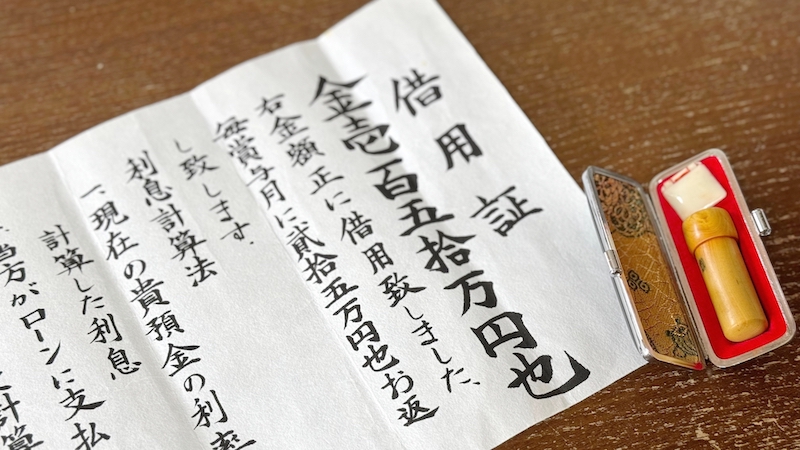 借用証
金壱百五拾万円也
右金額正に借用致しました、
毎賞与月に貮拾五万円也お返
し致します.
利息計算法
一、現在の貴預金の利率
計算した利息
当方がローンに支払
計算